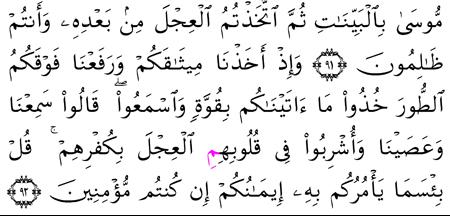 مُّوسَىٰ بِالْبَيِّنَـٰتِ ثُمَّ ٱتَّخَذْتُمُ ٱلْعِجْلَ مِنۢ بَعْدِهِۦ وَأَنتُمْ
ظَـٰلِمُونَ ﴿٩١﴾ وَإِذْ أَخَذْنَا مِيثَـٰقَكُمْ وَرَفَعْنَا فَوْقَكُمُ
ٱلطُّورَ خُذُوا۟ مَآ ءَاتَيْنَـٰكُم بِقُوَّةٍ وَٱسْمَعُوا۟ ۖ قَالُوا۟ سَمِعْنَا
وَعَصَيْنَا وَأُشْرِبُوا۟ فِى قُلُوبِهِمِ ٱلْعِجْلَ بِكُفْرِهِمْ ۚ قُلْ
بِئْسَمَا يَأْمُرُكُم بِهِۦٓ إِيمَـٰنُكُمْ إِن كُنتُم مُّؤْمِنِينَ ﴿٩٢﴾